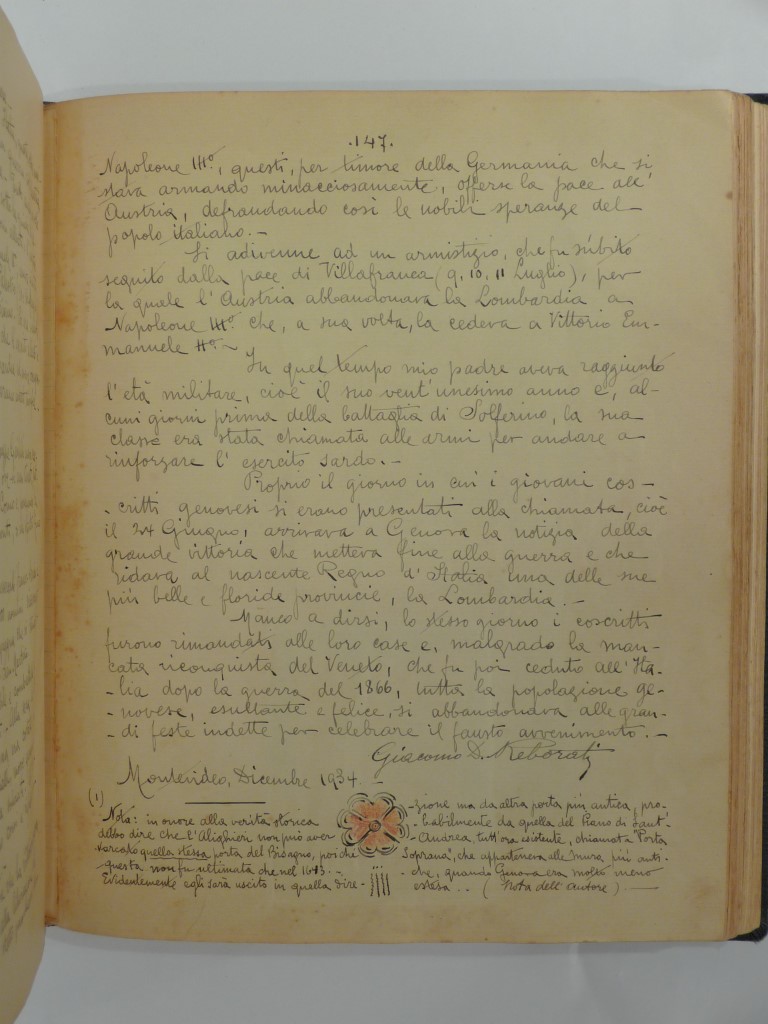 .147.
Napoleone IIIº, questi, per timore della Germania che si
stava armando minacciosamente, offerse la pace all'
Austria, defraudando così le nobili speranze del
popolo italiano. –
Si adivenne ad un armistizio, che fu súbito
seguito dalla pace di Villafranca (9, 10, 11 Luglio), per
la quale l'Austria abbandonava la Lombardia a
Napoleone IIIº che, a sua volta, la cedeva a Vittorio Em-
manuele IIº. ~
In quel tempo mio padre aveva raggiunto
l'età militare, cioè il suo vent'unesimo anno e, al-
cuni giorni prima della battaglia di Solferino, la sua
classe era stata chiamata alle armi per andare a
rinforzare l'esercito sardo. –
Proprio il giorno in cui i giovani cos-
- critti genovesi si erano presentati alla chiamata, cioè
il 24 Giugno, arrivava a Genova la notizia della
grande vittoria che metteva fine alla guerra e che
ridava al nascente Regno d'Italia una delle sue
più belle e floride provincie, la Lombardia. –
Manco a dirsi, lo stesso giorno i coscritti
furono rimandati alle loro case e, malgrado la man-
cata riconquista del Veneto, che fu poi ceduto all'Ita-
- lia dopo la guerra del 1866, tutta la popolazione ge-
- novese, esultante e felice, si abbandonava alle gran-
- di feste indette per celebrare il fausto avvenimento. –
Giacomo D. Reborati
Montevideo, Dicembre 1934. –
(1)
Nota: in onore alla verità storica
debbo dire che l'Alighieri non può aver
varcato quella stessa porta del Bisagno, poichè
questa non fu ultimata che nel 1643. –
Evidentemente egli sarà uscito in quella dire-
- zione ma da altra porta più antica, pro-
- babilmente da quella del Piano di Sant'
- Andrea, tutt'ora esistente, chiamata "Porta
Soprana", che apparteneva alle mura più anti-
- che, quando Genova era molto meno
estesa. . (Nota dell'autore). —